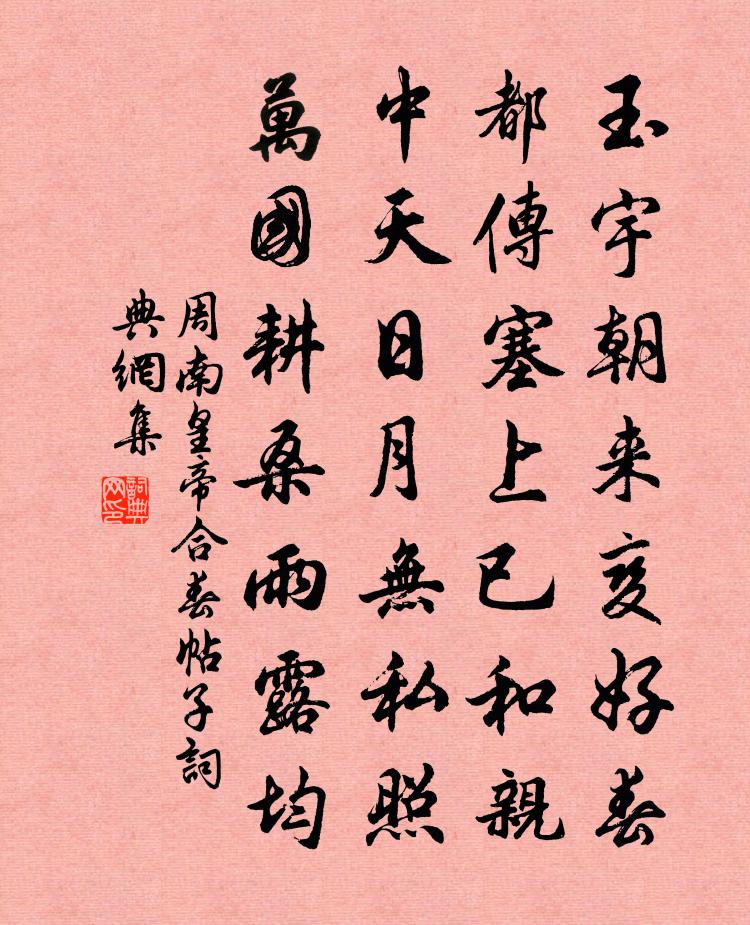 玉宇朝来变好春
都傳塞上已和親
中天日月無私照
萬國耕桑雨露均
周南皇帝合春帖子詞
典網集
詞典
网印